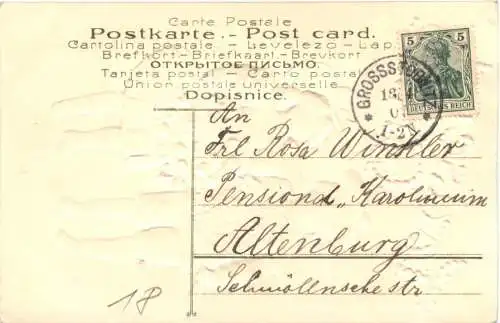 Carte Postale
Postkarte. - Post card.
Cartolina postale. - Levelezo - Lap.
Brefkort - Briefkaart - Brevkort
ОТКРЫТОЕ ПИСЬМО.
Tarjeta postal - Carto postal
Union postale universelle
Dopisnice.
5 5
DEUTSCHES REICH
1-2N
An
Frl Rosa Winkler
Pensionat „Karolinum
Altenburg
Schmöllnsche str
18